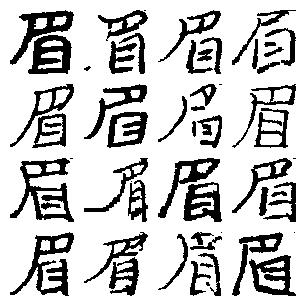 眉眉眉眉
眉眉眉眉
眉眉眉眉
眉眉眉眉